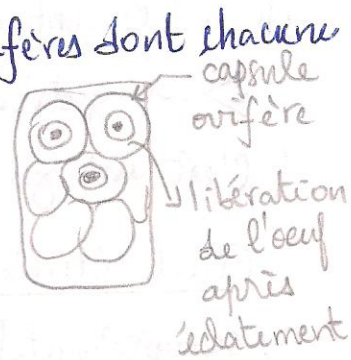 fères dont chacune
capsule
ovifère
libération
de l'oeuf
après
éclatement